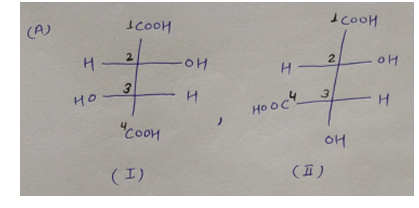 (A)
1COOH
H 2 OH
HO 3 H
4COOH
(I)
,
1COOH
H 2 OH
HOOC4 3 H
OH
(II)